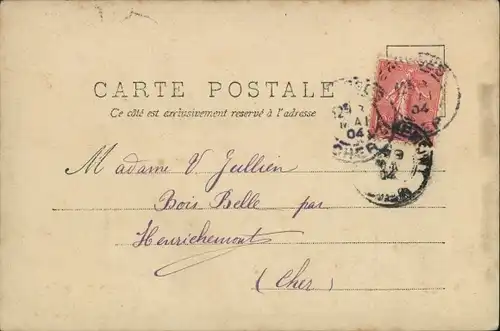 CARTE POSTALE
Ce côté est exclusivement reservé à l'adresse
MAI
04
CHER
04
Madame V Jullien
Bois Belle par
Henrichemont
(Cher)